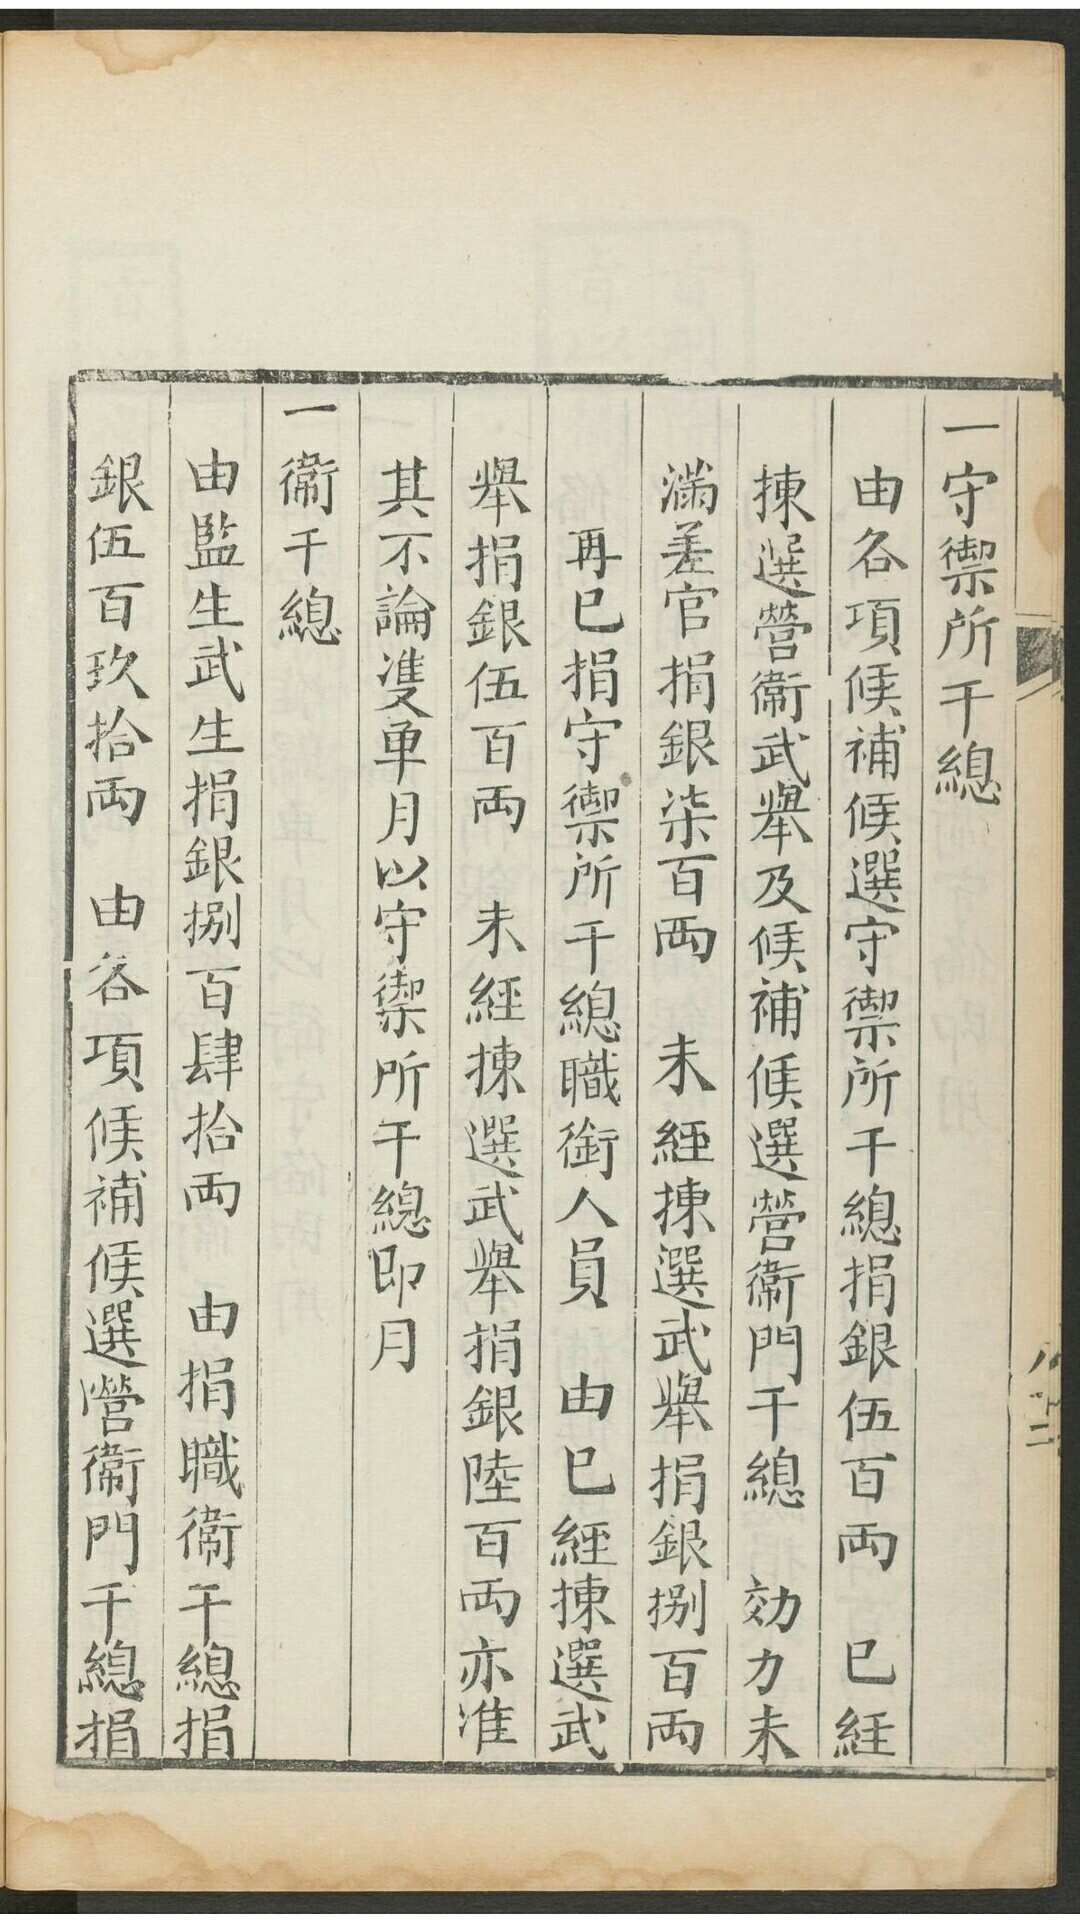 一守禦所千總
由各項候補候選守禦所千總捐銀伍百兩　已經
揀選營衞武舉及候補候選營衞門千總　効力未
滿差官捐銀柒百兩　未經揀選武舉捐銀捌百兩
再已捐守禦所千總職銜人員　由已經揀選武
舉捐銀伍百兩　未經揀選武舉捐銀陸百兩亦准
其不論雙單月以守禦所千總即月
一衞千總
由監生武生捐銀捌百肆拾兩　由捐職衞千總捐
銀伍百玖拾兩　由各項候補候選營衞門千總捐